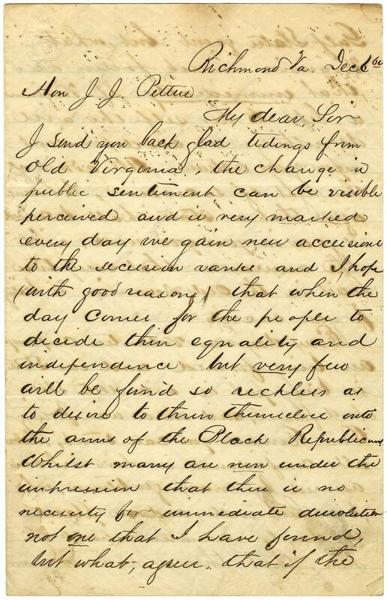 Richmond Va. Dec 6 60
Hon J. J. Pettus
My dear Sir
I send you back glad tidings from
Old Virginia, the change in
public sentiment can be visible
perceived and is very marked
every day we gain new accessions
to the secession ranks and I hope
(with good reasons) that when the
day comes for the people to
decide their equality and
independence but very few
will be found so reckless as
to desire to throw themselves into
the arms of the Black Republicans
Whilst many are now under the
impression that there is no
necessity for immediate dissolution
not one that I have found,
but what, agree that if the